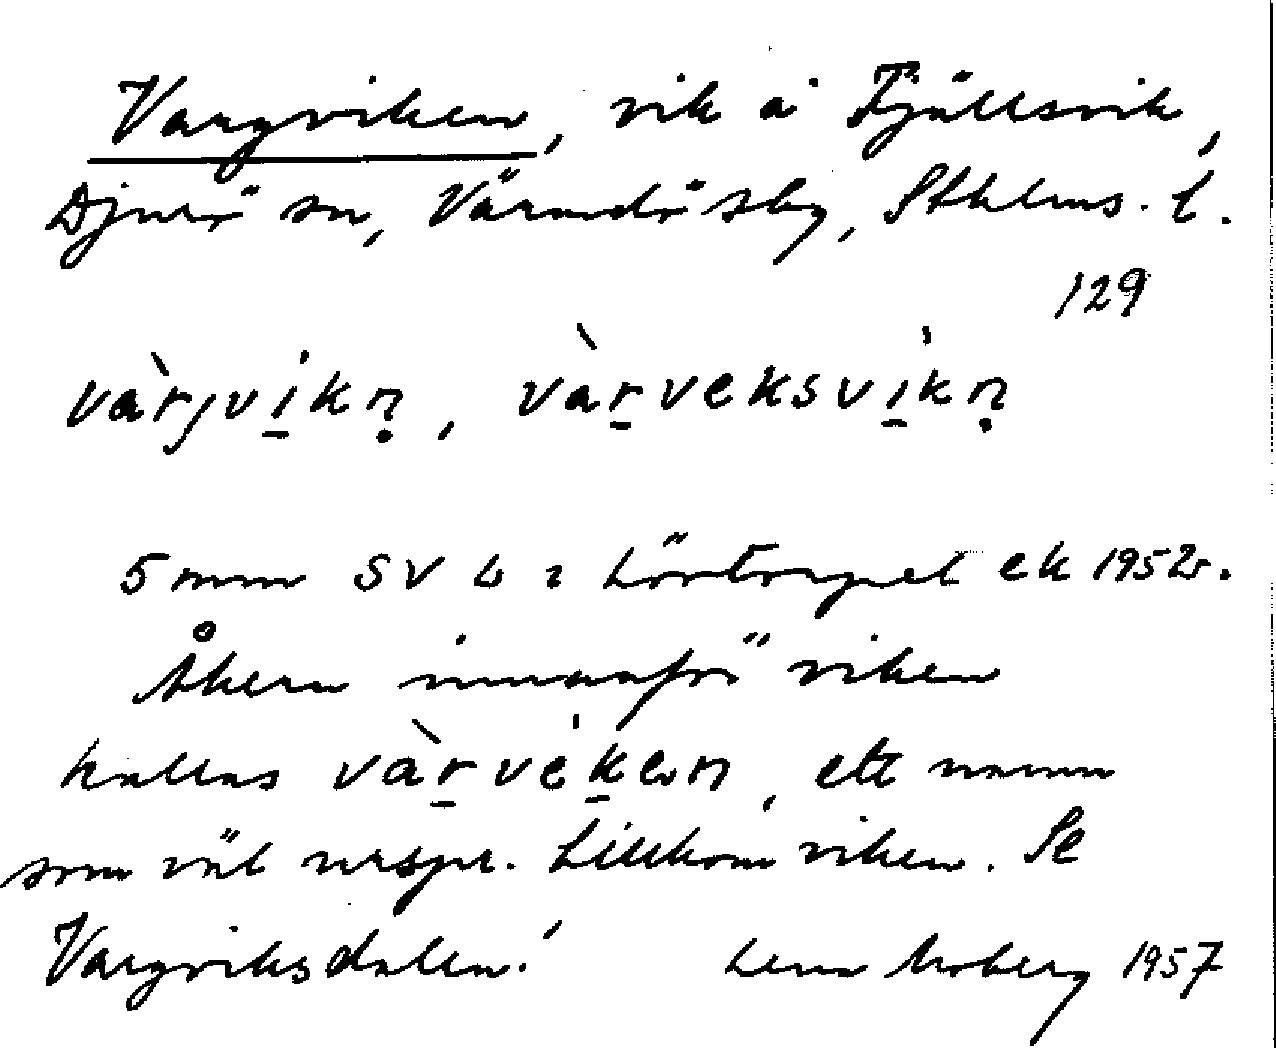 Vargviken, vik å Fjällsvik,
Djurö sn, Värmdö sbg, Sthlms. l.
129
vàrjvikn̥, vàrveksvikn̥
5 mm SV L i Lörtorpet ek 1952.
Åkern innanför viken
kallas vàrveken, ett namn
som väl urspr. tillkom viken. Se
Vargviksdalen!
Lena Moberg 1957